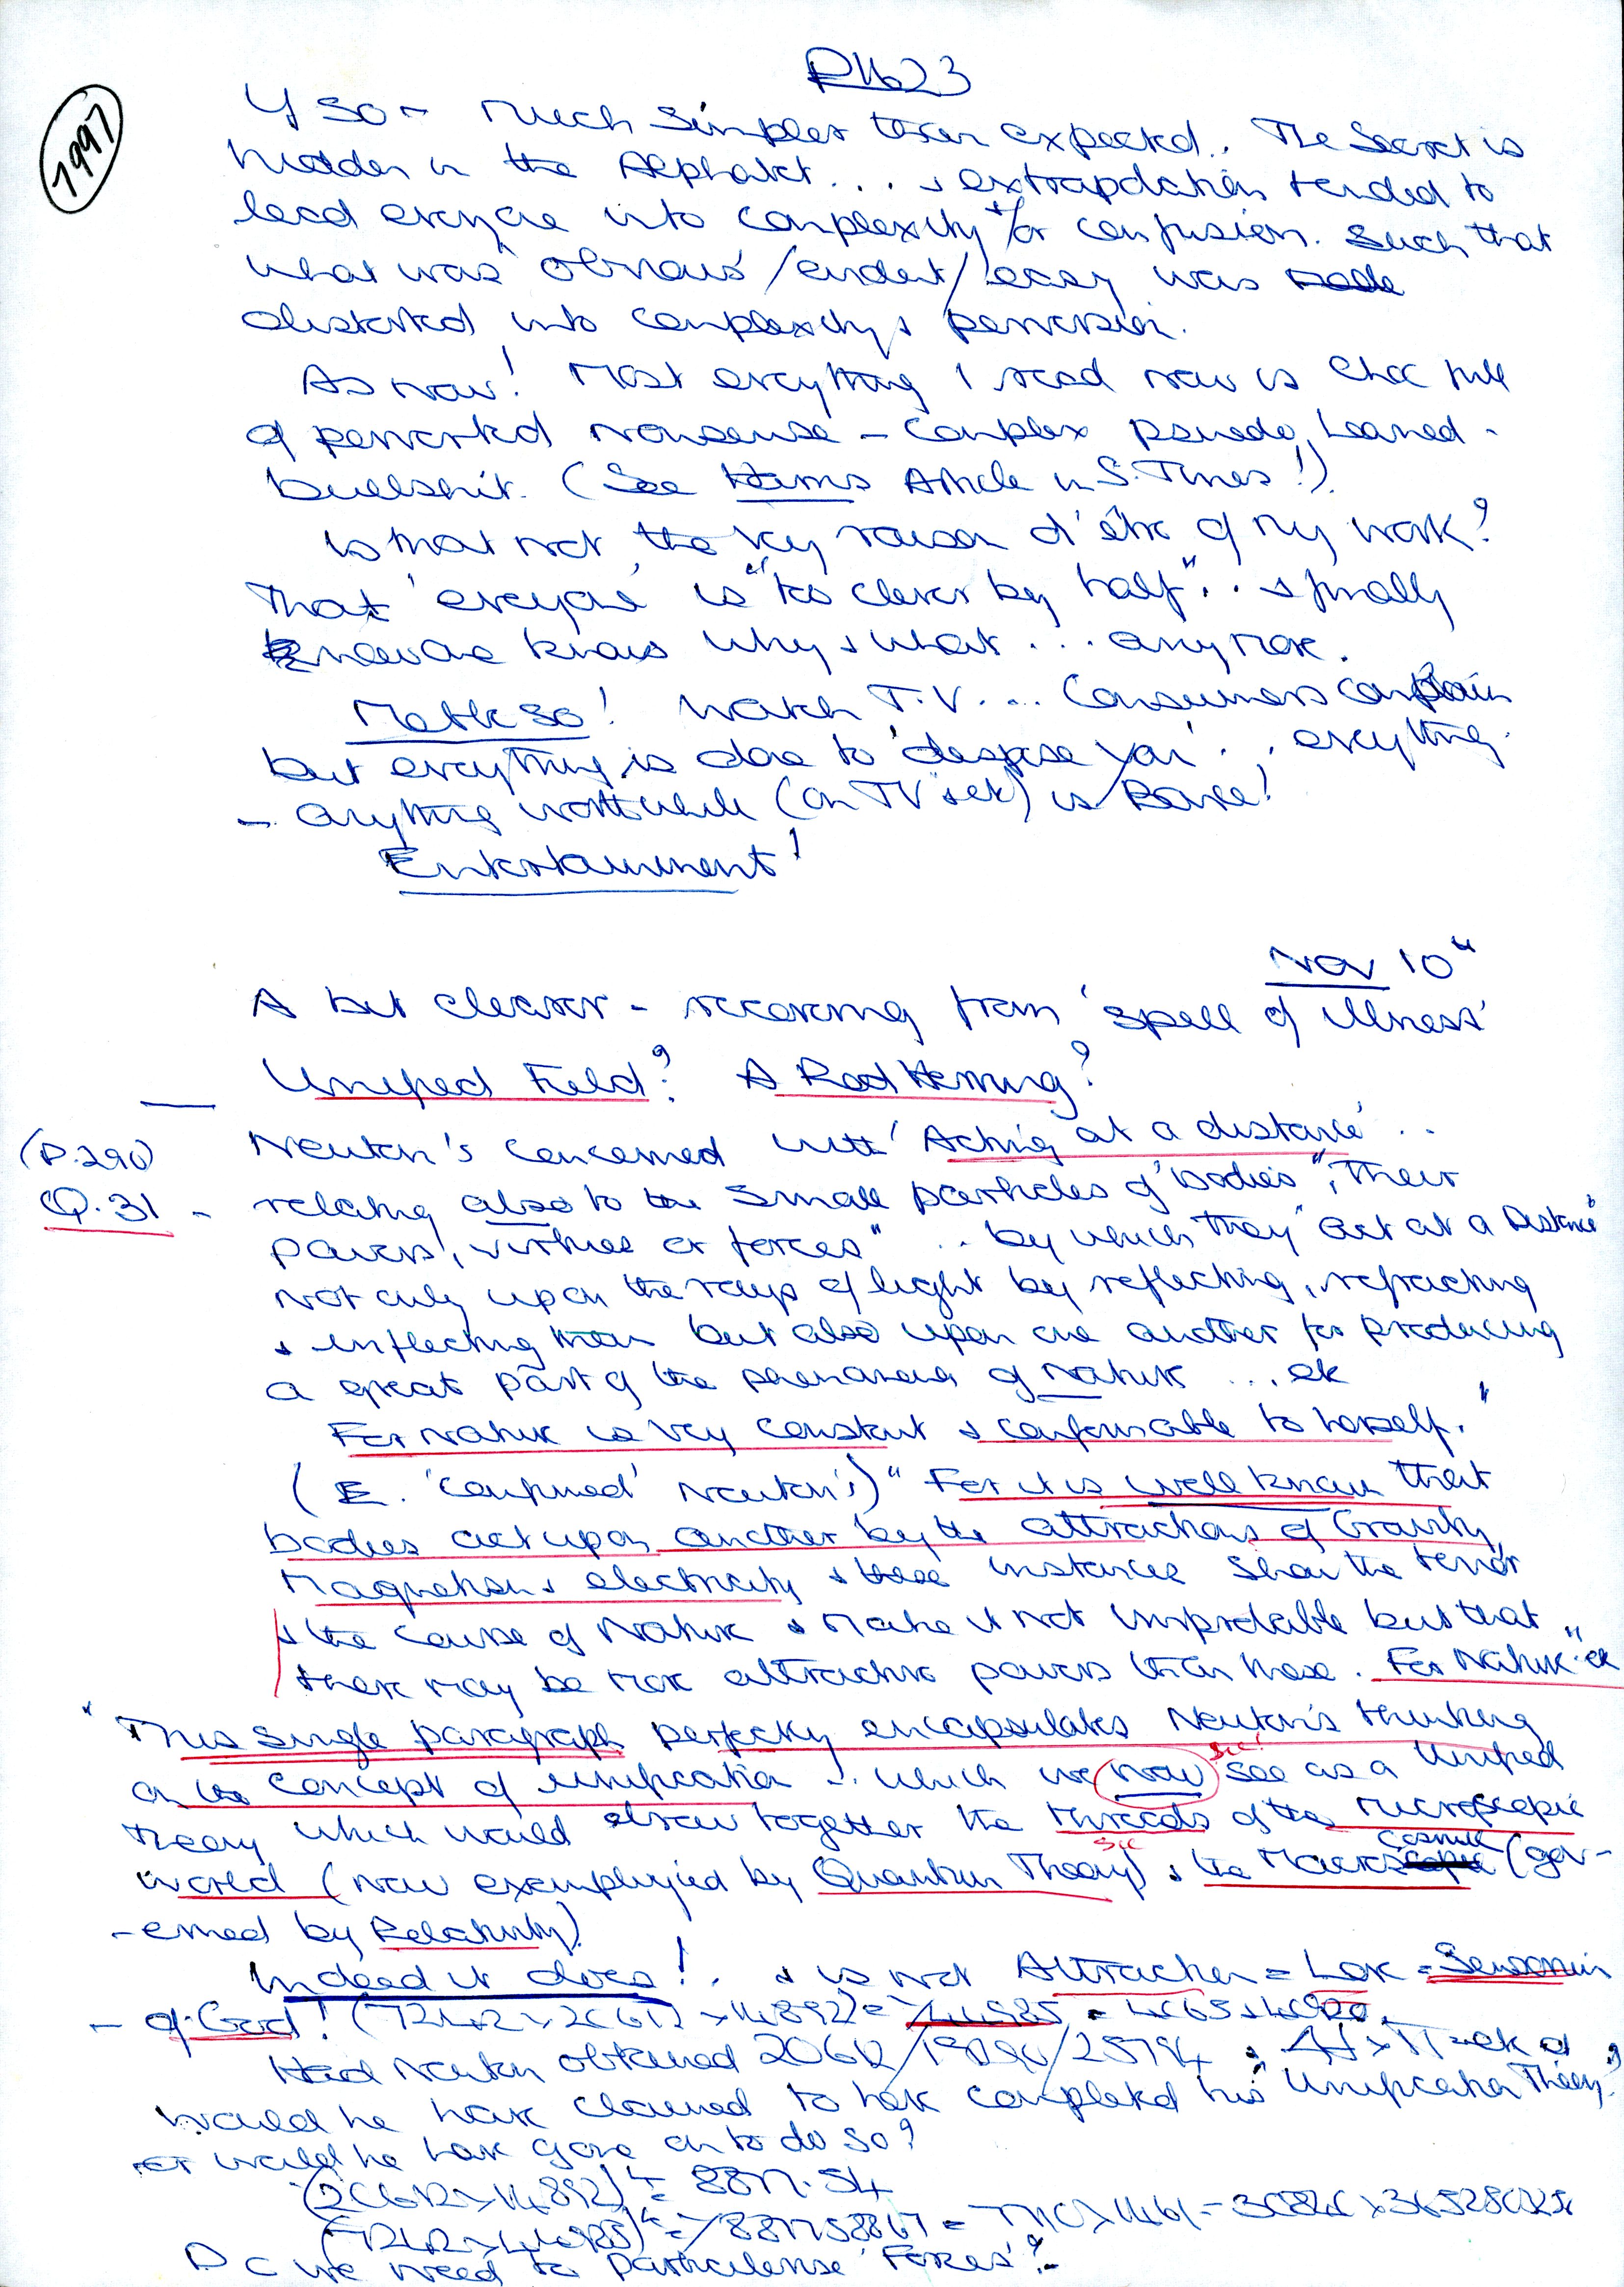 P1623
1997
If so - much simpler than expected.. The Secret is
hidden in the Alphabet... & extrapolation tended to
lead everyone into complexity &/or confusion. Such that
what was 'obvious'/evident/easy was
distorted into complexity & perversion.
As now! Most everything I read now is choc full
of perverted nonsense - complex pseudo, learned -
bullshit. (See Article in S. Times!).
Is that not the key raison d'être of my work?
That 'everyone' is "too clever by half".. & finally
no one knows why & what ... anymore.
Watch T.V.... Consumers complain
but everything is done to 'despise you'.. everything.
- anything worthwhile (on TV set) is Rare!
Entertainment!
Nov 10"
A bit clearer - recovering from 'spell of illness'
Unified Field? A Red Herring?
(P.290)
Newton's concerned with 'Acting at a distance'..
Q.31 - relating also to the small particles of 'bodies', "Their
powers, virtues or forces" .. by which they "act at a Distance
not only upon the rays of light by reflecting, refracting
& inflecting them but also upon one another for producing
a great part of the phenomena of Nature ... etc
For Nature is very constant & conformable to herself."
(E. 'confirmed' Newton!) "For it is well known that
bodies act upon another by the attractions of Gravity,
Magnetism & electricity & these instances show the tenor
& the course of Nature & make it not improbable but that
there may be more attractive powers than these. For Nature" etc
"This single paragraph perfectly encapsulates Newton's thinking
on the concept of unification .. which we (now) sic! see as a Unified
Theory which would draw together the threads of the microscopic
world (now exemplified by Quantum Theory) sic & the Macrocosmic (gov-
-erned by Relativity).
Indeed it does!. & is not Attraction = Love =
- of God!
Had Newton obtained 20612/
would he have claimed to have completed his "Unification Theory"?
or would he have gone on to do so?
Do we need to 'Forces'?